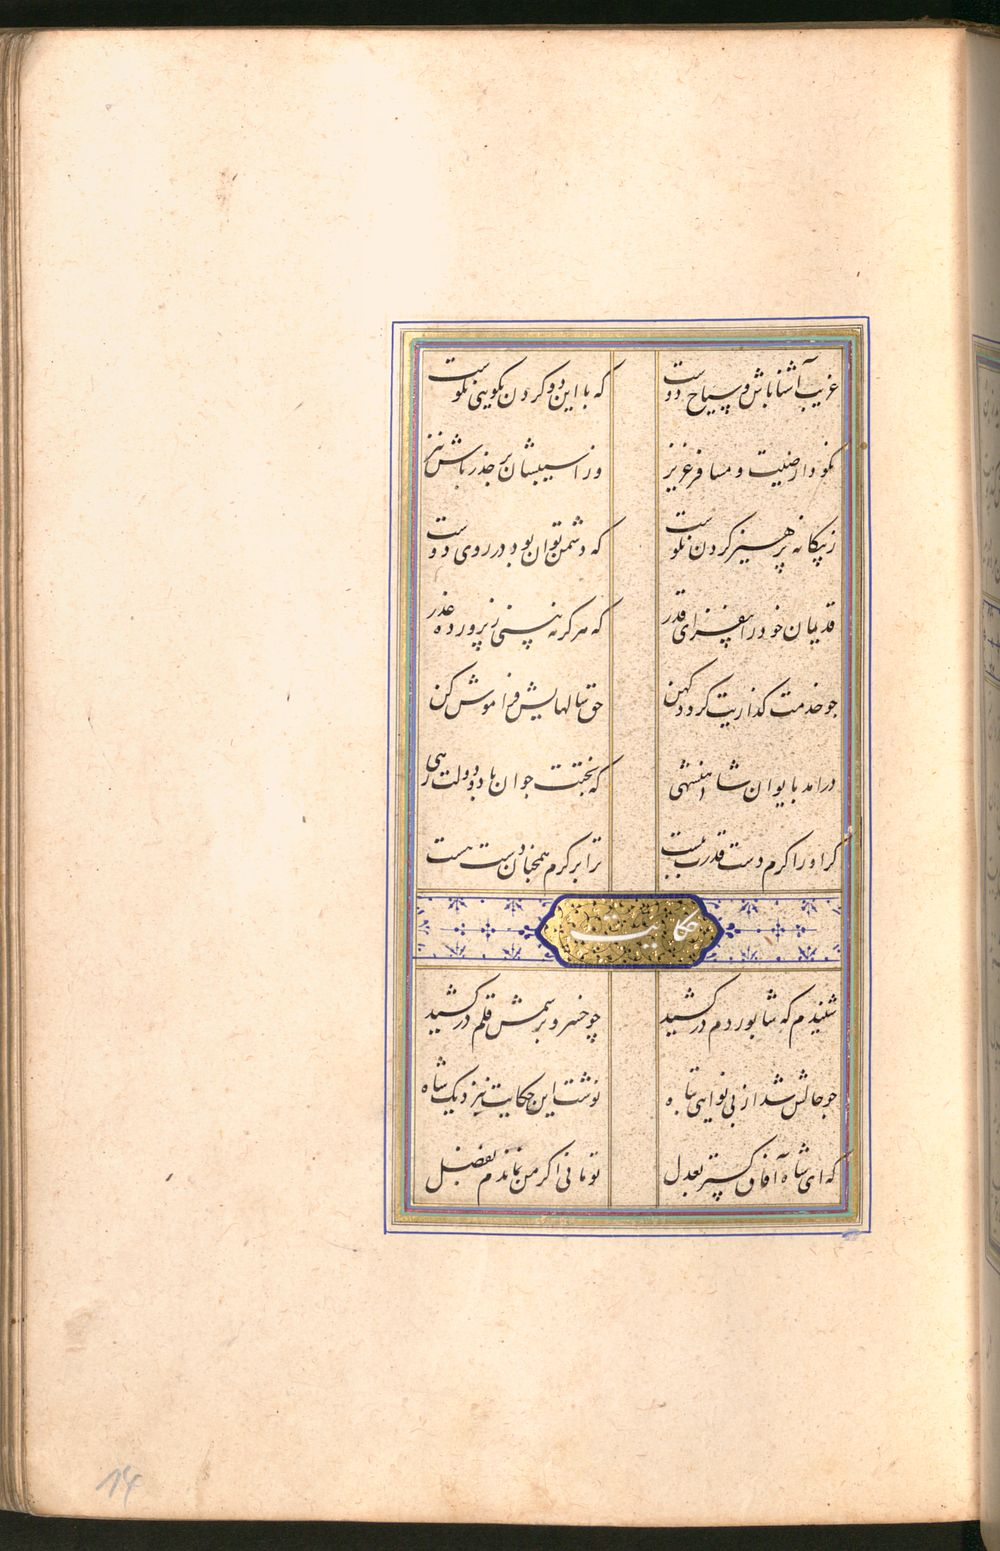 غریب آشنا باش و سیاح دوست که با این دو کردن نکویی نکوست
نکو دار ضیف و مسافر عزیز وز آسیبشان بر حذر باش نیز
ز بیگانه پرهیز کردن نکوست که دشمن توان بود در روی دوست
قدیمان خود را بیفزای قدر که هرگز نبینی ز پرورده غدر
چو خدمت گذاریت گردد کهن حق سالهایش فراموش کن
درآمد بایوان شاهنشهی که بختت جوان باد و دولت رهی
گر او را کرم دست قدرت ببست ترا بر کرم همچنان دست هست
حکایت
شنیدم که شاپور دم در کشید چو خسرو برسمش قلم در کشید
چو حالش شد از بی نوایی تباه نوشت این حکایت بنزدیک شاه
که ای شاه آفاق گستر بعدل تو مانی اگر من نماندم بفضل
14